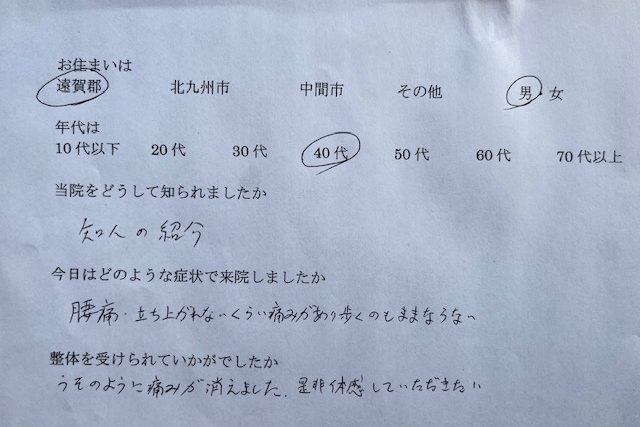 お住まいは
遠賀郡 北九州市 中間市 その他 男・女
年代は
10代以下 20代 30代 40代 50代 60代 70代以上
当院をどうして知られましたか
知人の紹介
今日はどのような症状で来院しましたか
腰痛・立ち上がれないくらい痛みがあり歩くのもままならない
整体を受けられていかがでしたか
うそのように痛みが消えました。是非体感していただきたい